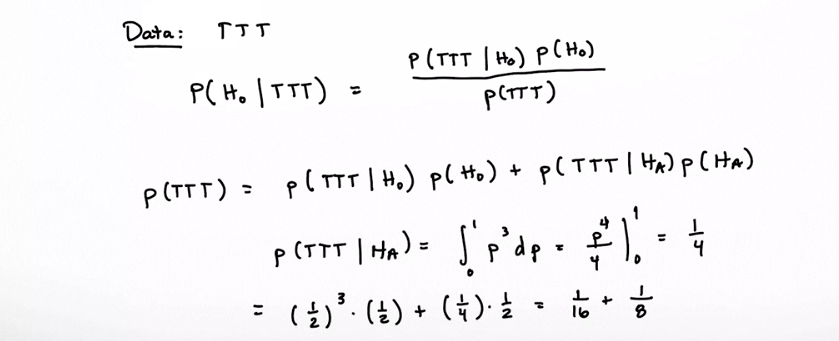 Data: TTT
P(H₀ | TTT) = P(TTT | H₀) P(H₀) / P(TTT)
P(TTT) = P(TTT | H₀) P(H₀) + P(TTT | H_A) P(H_A)
P(TTT | H_A) = ∫₀¹ p³ dp = p⁴/4 |₀¹ = 1/4
= (1/2)³ · (1/2) + (1/4) · 1/2 = 1/16 + 1/8